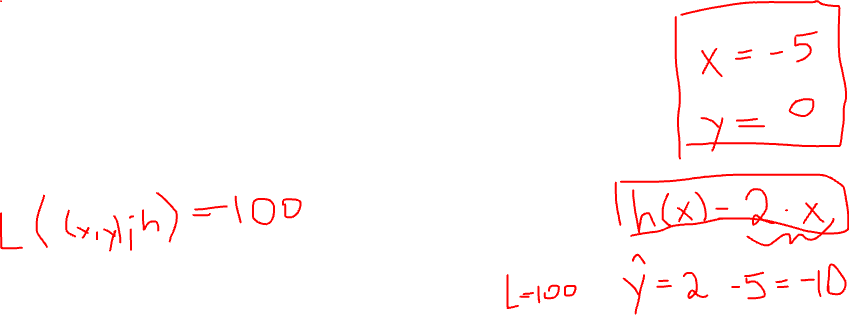 x = -5
y = 0
L((x,y);h) = -100
h(x) - 2 · x
L=100 ŷ = 2 -5 = -10